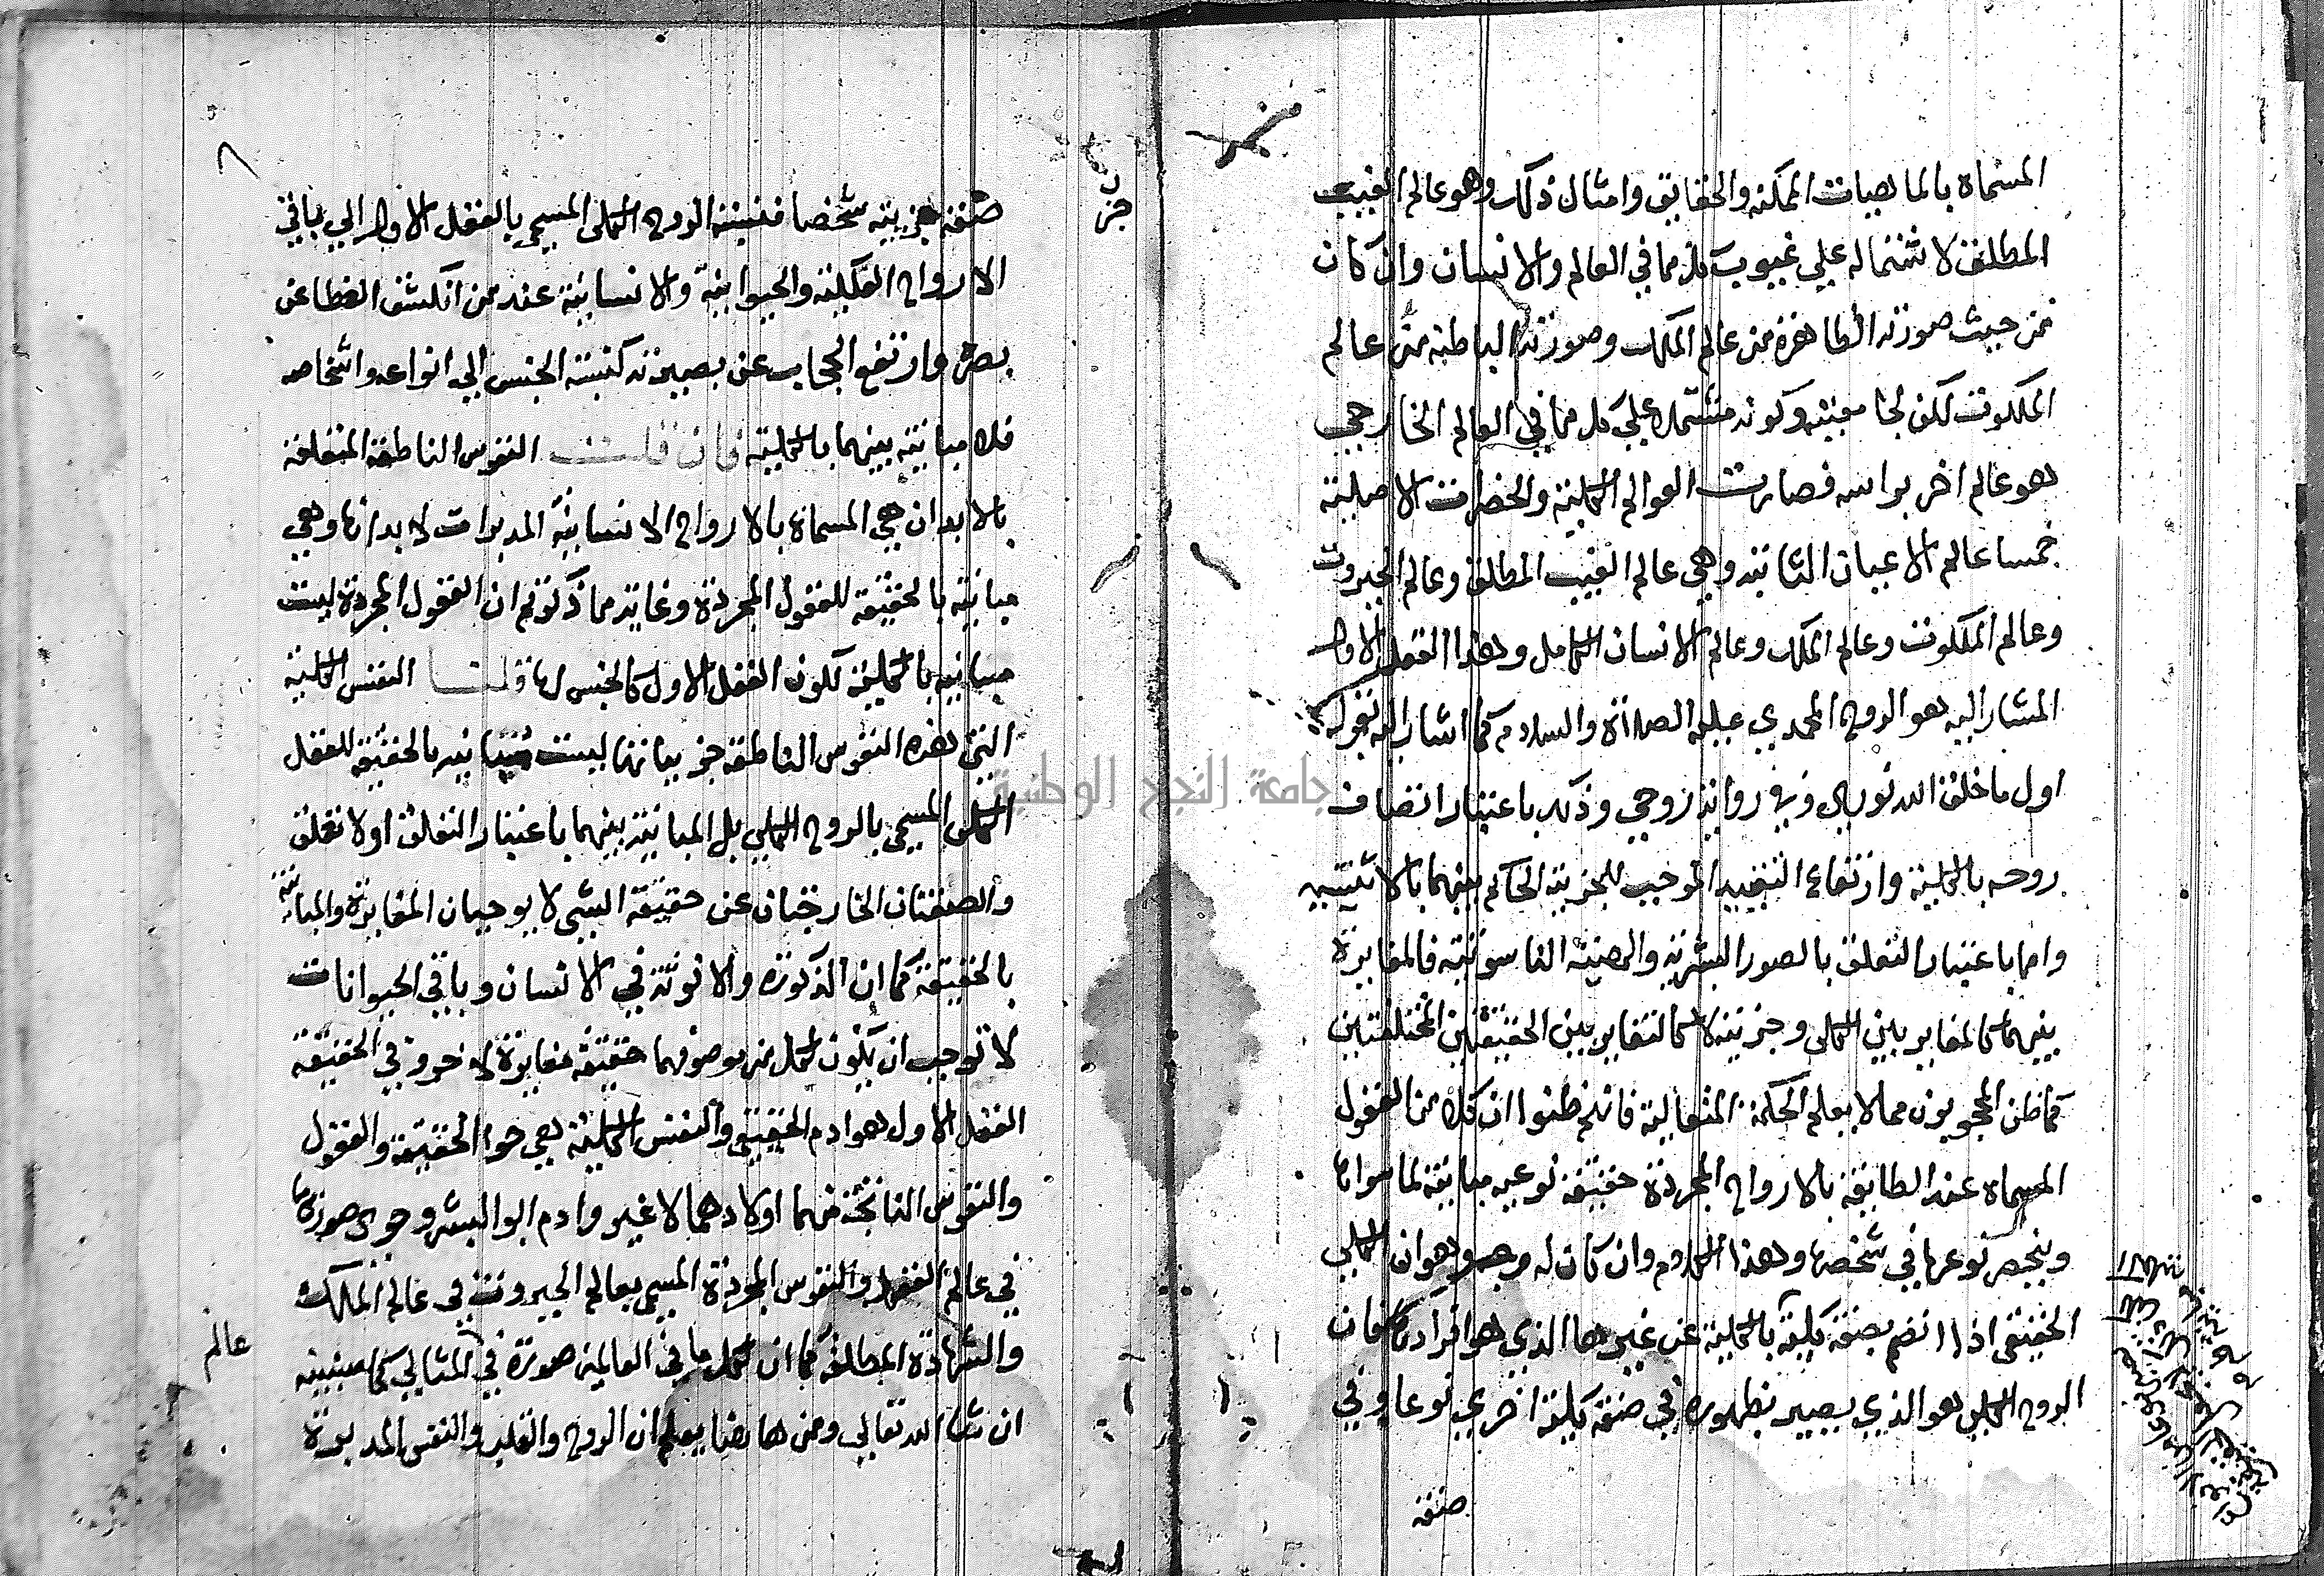 المسماة بالماهيات الممكنة والحقايق وامثال ذلك وهو عالم الغيب
المطلق لاشتماله علي غيوب كل ما في العالم والانسان وان كان
من حيث صورته الظاهرة من عالم الملك وصورته الباطنة من عالم
الملكوت لكن لجامعيته وكونه مشتملا علي كل ما في العالم الخارجي
هو عالم اخر براسه فصارت العوالم الكلية والحضرات الاصلية
خمسا عالم الاعيان الثابتة وهي عالم الغيب المطلق وعالم الجبروت
وعالم الملكوت وعالم الملك وعالم الانسان الكامل وهذا العقل الاول
المشار اليه هو الروح المحمدي عليه الصلاة والسلام كما اشار اليه بقوله
اول ما خلق الله نوري وفي رواية روحي وذلك باعتبار اتصاف
روحه بالكلية وارتفاع التقييد الموجب للجزيية الحاكم بينهما بالاثنينية
واما باعتبار التعلق بالصور البشرية والهيئة الناسوتية فالمغايرة
بينهما كالمغاير بين الكلي وجزئيته لا كالتغاير بين الحقيقتين المختلفتين
كما ظن المحجوبون ممن لا يعلم الحكمة المتعالية فانهم ظنوا ان كلا من العقول
المسماه عند الطايفة بالارواح المجردة حقيقة نوعيه مباينة لما سواها
وينحصر نوعها في شخصها وهذا الكلام وان كان له وجه وهو ان الكلي
الحقيقي اذا انضم بصفة كلية بالكلية عن غيرها الذي هو افرادها فان
الروح الكلي هو الذي يصير بظهوره في صفة كلية اخري نوعا وفي
صفة
٨
صفة جزيية شخصا فنسبة الروح الكلي المسمي بالعقل الاول الي باقي
الارواح الفلكية والحيوانية والانسانية عند من انكشف الغطا عن
بصره وارتفع الحجاب عن بصيرته كنسبة الجنس الي انواعه واشخاصه
فلا مباينة بينهما بالكلية فان قلت النفوس الناطقة المتعلقة
بالابدان هي المسماة بالارواح الانسانية المدبرات لابدانها وهي
مباينة بالحقيقة للعقول المجردة وغاية ما ذكرتم ان العقول المجردة ليست
مباينة بالكلية لكون العقل الاول كالجنس لها قلت النفس الكلية
التي هذه النفوس الناطقة جزيياتها ليست مباينة بالحقيقة للعقل
الكلي المسمي بالروح الكلي بل المباينة بينهما باعتبار التعلق اولا تعلق
والصفتان الخارجتان عن حقيقة الشي لا يوجبان المغايرة والمباينة
بالحقيقة كما ان الذكورة والانوثة في الانسان وباقي الحيوانات
لا توجب ان يكون لكل من موصوفهما حقيقة مغايرة للاخر وفي الحقيقة
العقل الاول هو ادم الحقيقي والنفس الكلية هي حوا الحقيقة والعقول
والنفوس الناتجة منهما اولادهما لا غير وادم ابو البشر وحوى صورتها
في عالم العقول والنفوس المجردة المسمي بعالم الجبروت في عالم الملك
والشهادة المطلقة كما ان لكل ما في العالمين صورة في المثالي كما سنبينه
ان شا الله تعالي ومن هاهنا يعلم ان الروح والقلب والنفس المدبرة
عالم
جامعة النجاح الوطنية